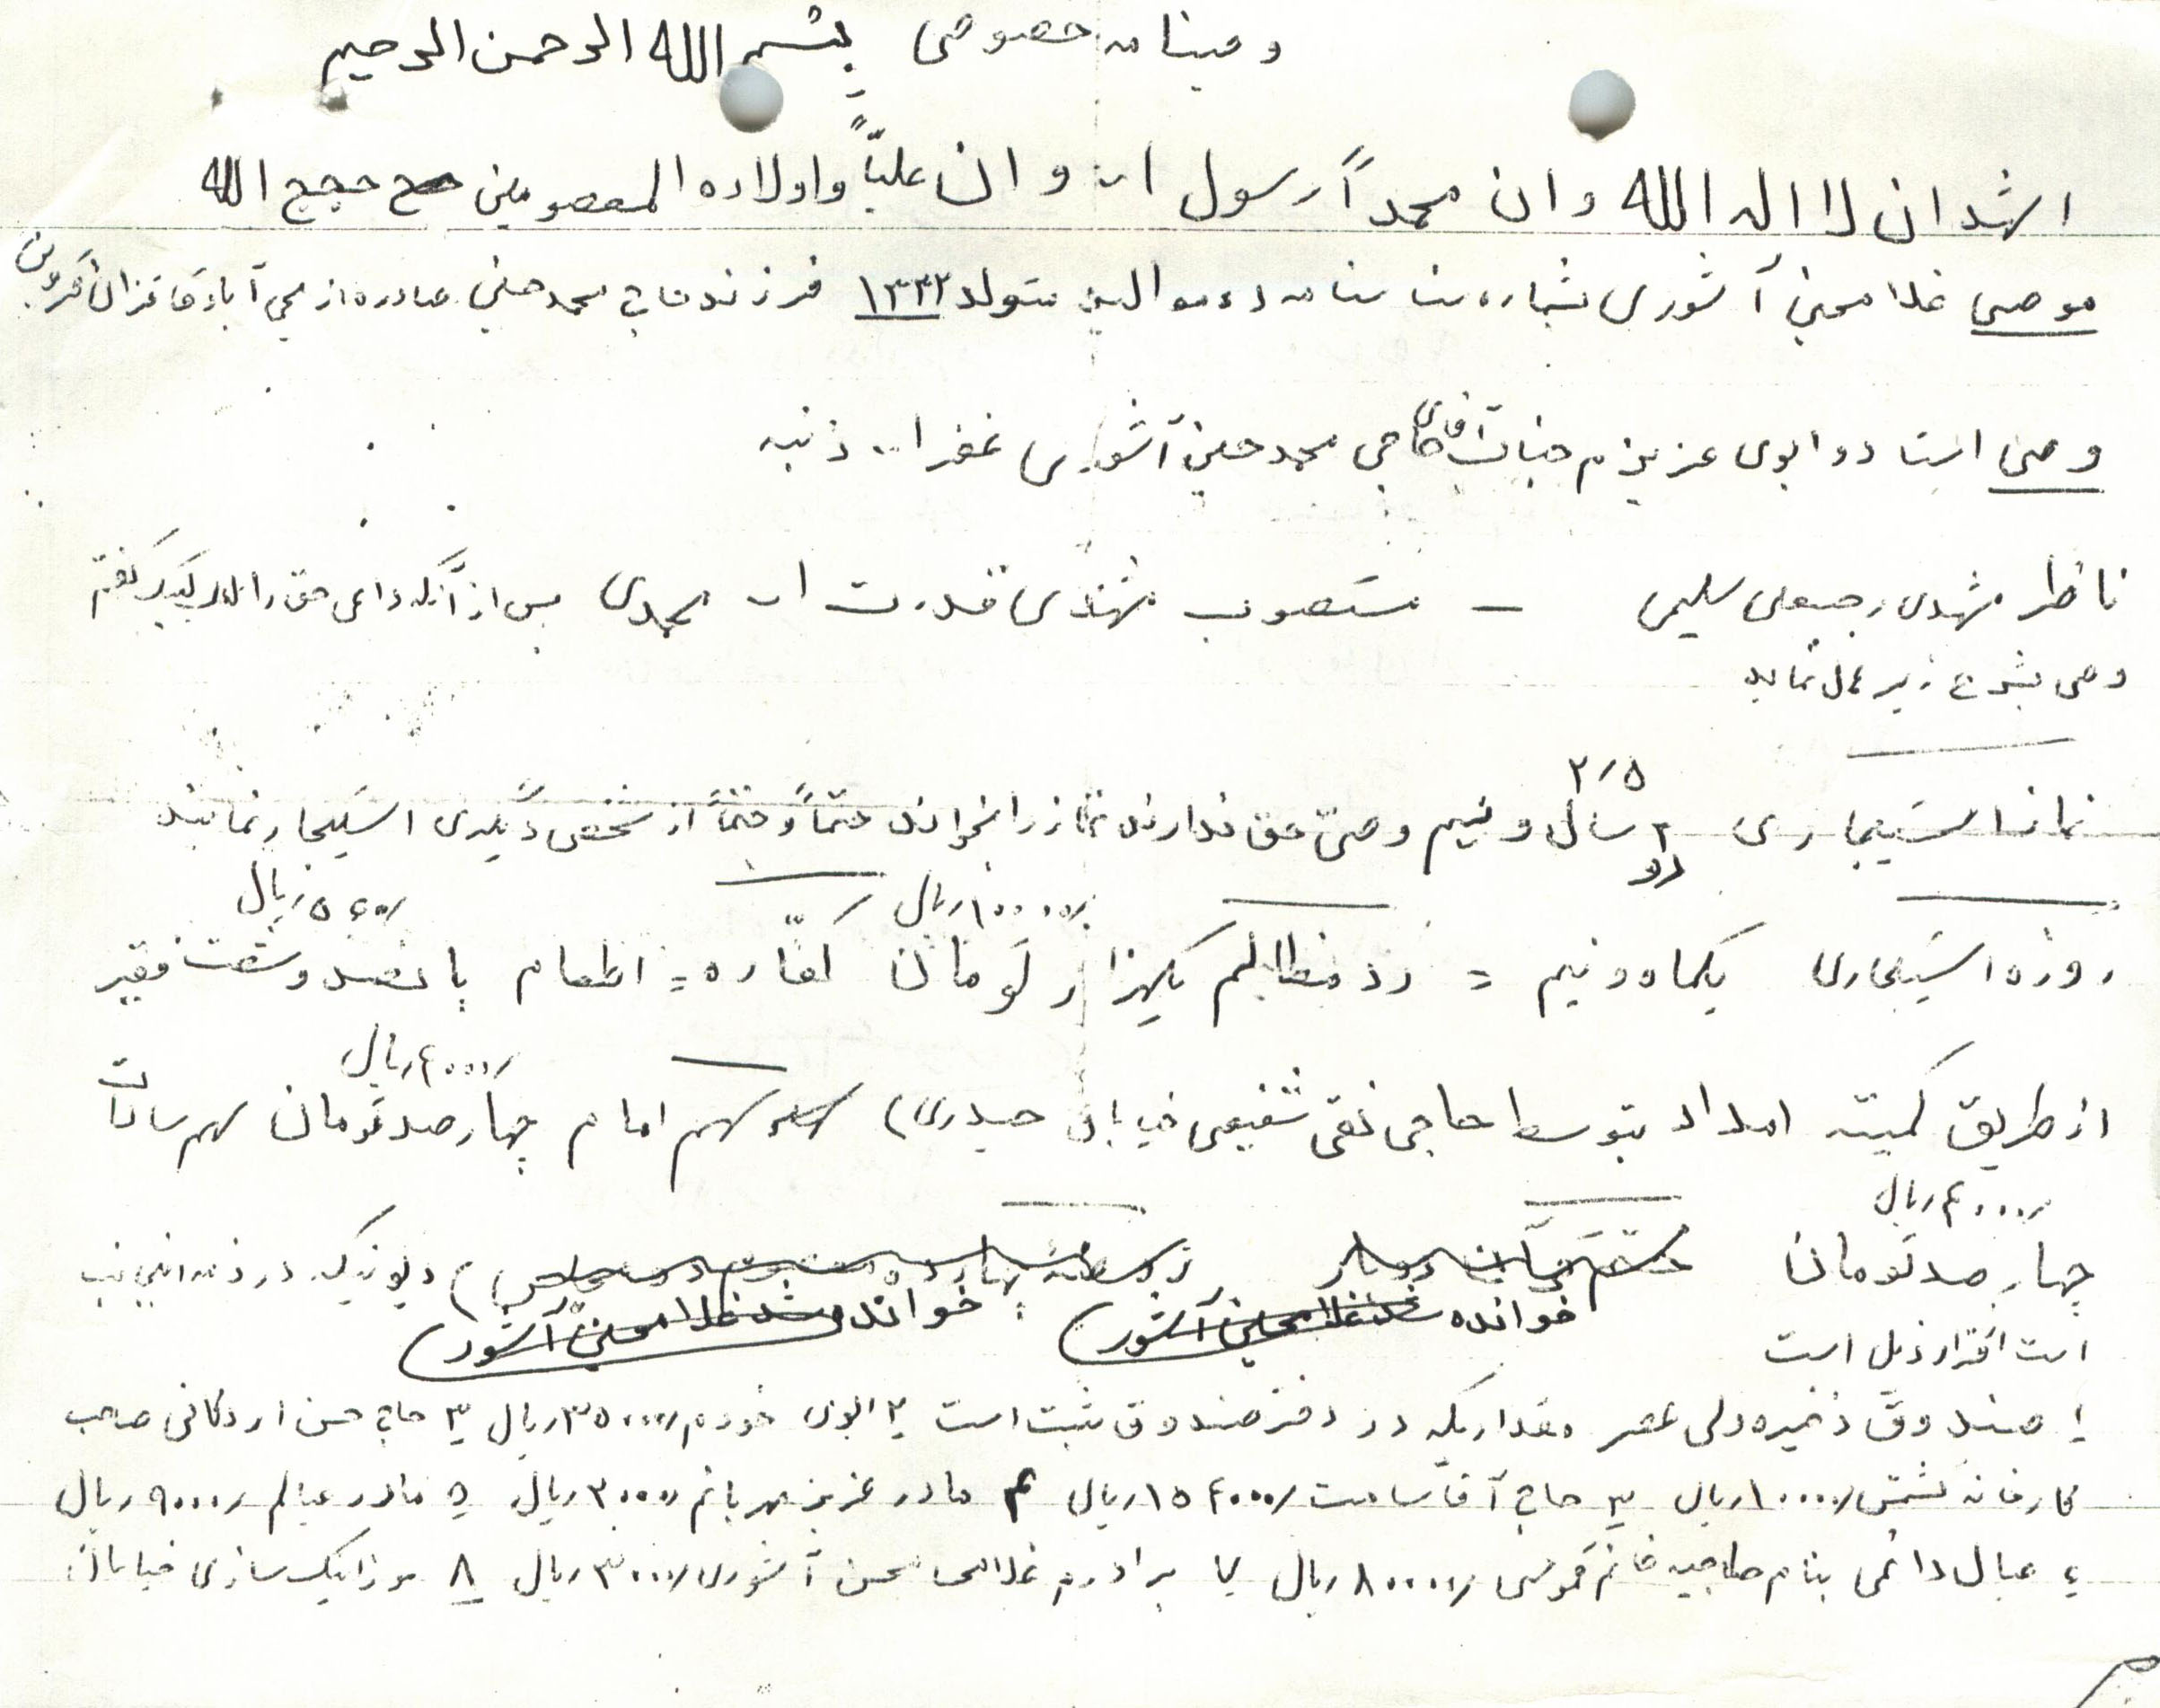 وصیتنامه خصوصی بسم الله الرحمن الرحیم
اشهد ان لا اله الا الله و ان محمداً رسول الله و ان علیاً و اولاده المعصومین حجج الله
موصی غلامحسین آشوری بشماره شناسنامه متولد ۱۳۳۲ فرزند حاج محمد حسین صادره از
وصی استاد و ابوی عزیزم جناب آقای حاجی محمد حسین آشوری غفرا.. ذنبه
ناظر مشهدی رجبعلی سلیمی – مستصوب مشهدی قدرت ا.. محمدی پس از آنکه داعی حق را لبیک گفتم
وصی بشرح زیر عمل نماید
۲/۵
نماز استیجاری ۲ سال و نیم وصی حق ندارند نماز را بخوانند حتماً و حتماً از شخص دیگری استیجار نمایند
دو
۱۰۰۰۰/ ریال ۵۶۰/ ریال
روزه استیجاری یکماه و نیم = رد مظالم یکهزار تومان کفّاره = اطعام پانصد و شصت فقیر
۴۰۰۰/ ریال
از طریق کمیته امداد بتوسط حاجی نقی شفیعی خیابان حیدری) سهم امام چهارصد تومان سهم سادات
۴۰۰۰/ ریال
چهارصد تومان دیونیکه در ذمه اینجانب
خوانده شد غلامحسین آشوری خوانده شد غلامحسین آشوری
است بقرار ذیل است
۱ صندوق ذخیره ولی عصر مقداریکه در دفتر صندوق ثبت است ۲ ابوی خودم ۳۵۰۰۰/ ریال ۳ حاج حسن اردکانی صاحب
کارخانه کشمش ۱۰۰۰۰/ ریال ۳ حاج آقا سامت ۱۵۴۰۰۰/ ریال ۴ مادر عزیز مهربانم ۳۰۰۰۰/ ریال ۵ مادر عیالم ۹۰۰۰/ ریال
۶ عیال دائمی بنام خانم ۸۰۰۰۰/ ریال ۷ برادرم محسن آشوری ۳۰۰۰/ ریال ۸ موزائیک سازی خیابان